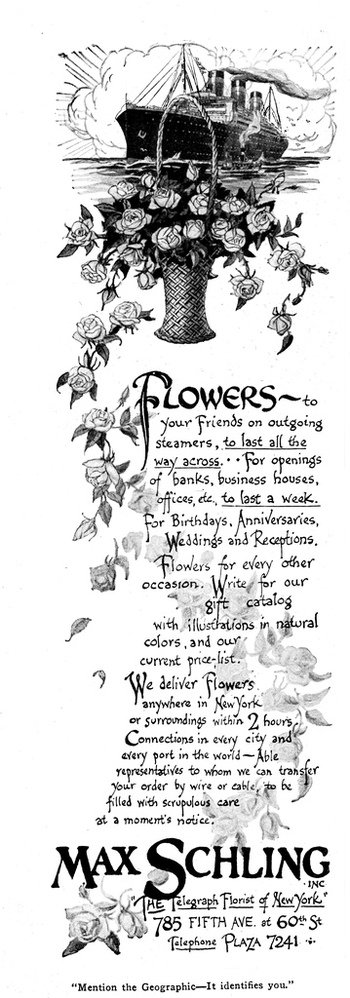 FLOWERS~to
your Friends on outgoing
steamers, to last all the
way across. · · For openings
of banks, business houses,
offices, etc., to last a week.
For Birthdays, Anniversaries,
Weddings and Receptions.
Flowers for every other
occasion. Write for our
gift catalog
with illustrations in natural
colors, and our
current price-list.
We deliver Flowers
anywhere in New York
or surroundings within 2 hours
Connections in every city and
every port in the world — Able
representatives to whom we can transfer
your order by wire or cable, to be
filled with scrupulous care
at a moment's notice.
MAX SCHLING
INC
"THE Telegraph Florist of New York"
785 FIFTH AVE. at 60th St
Telephone PLAZA 7241
"Mention the Geographic—It identifies you."